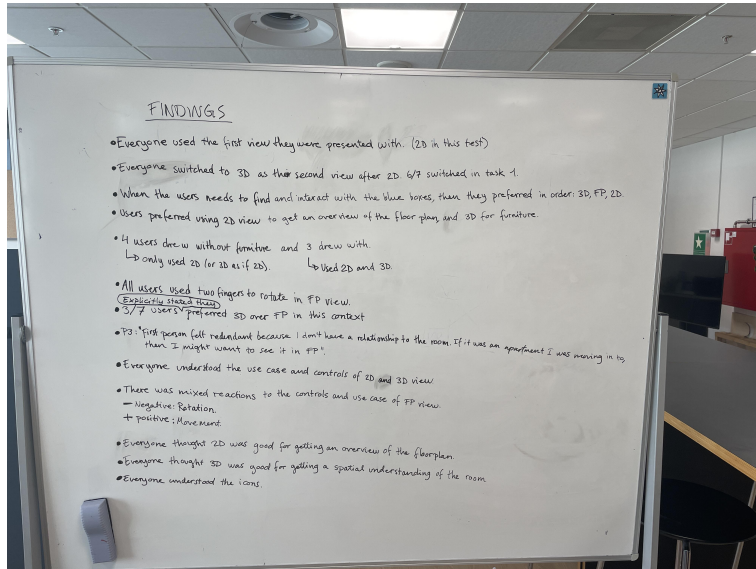 FINDINGS
• Everyone used the first view they were presented with. (2D in this test)
• Everyone switched to 3D as the second view after 2D. 6/7 switched in task 1.
• When the users needs to find and interact with the blue boxes, then they preferred in order: 3D, FP, 2D.
• Users preferred using 2D view to get an overview of the floor plan, and 3D for furniture.
• 4 users drew without furniture and 3 drew with.
↳ only used 2D (or 3D as if 2D). ↳ Used 2D and 3D.
• All users used two fingers to rotate in FP view.
Explicitly stated they
• 3/7 users preferred 3D over FP in this context
• P3: "First person felt redundant because I don't have a relationship to the room. If it was an apartment I was moving in to,
then I might want to see it in FP".
• Everyone understood the use case and controls of 2D and 3D view
• There was mixed reactions to the controls and use case of FP view.
− Negative: Rotation.
+ positive: Movement.
• Everyone thought 2D was good for getting an overview of the floorplan.
• Everyone thought 3D was good for getting a spatial understanding of the room
• Everyone understood the icons.